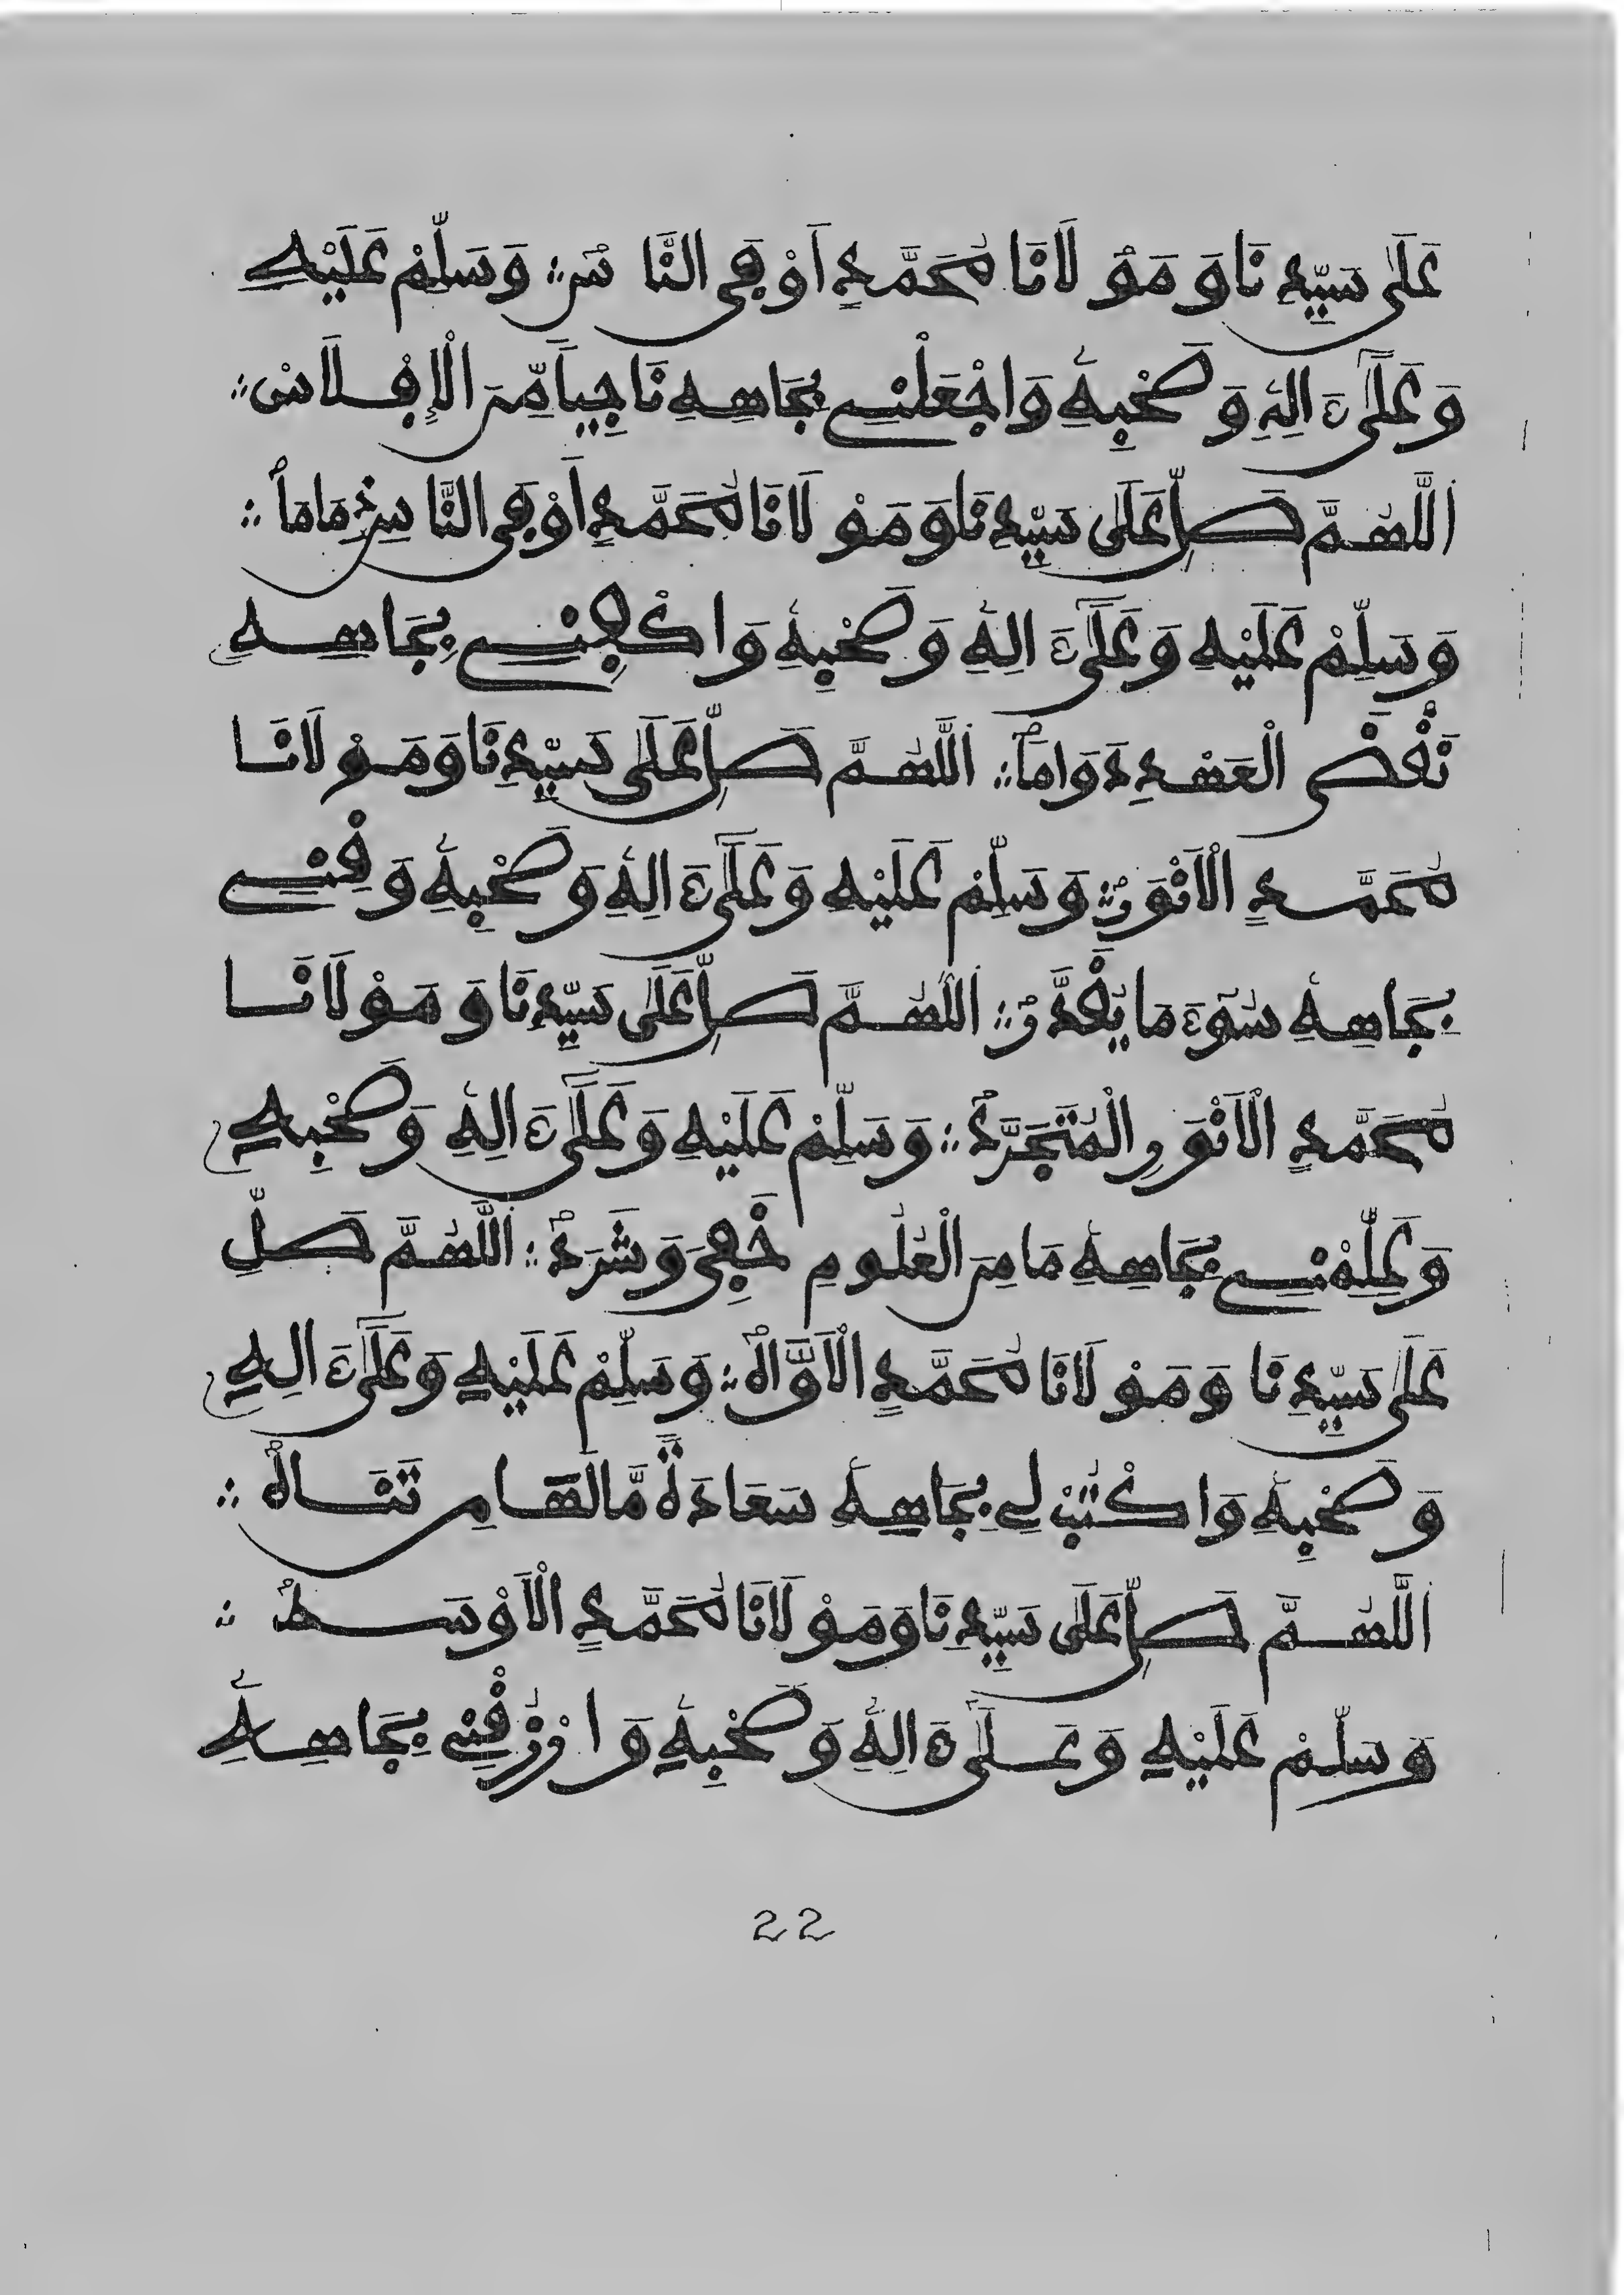 عَلَى سَيِّدِنَا وَمَوْلَانَا مُحَمَّدٍ اَوْفَى النَّاسْ ؞ وَسَلِّمْ عَلَيْهِ
وَعَلَىٰٓ ءَالِهِ وَصَحْبِهِ وَاجْعَلْنِے بِجَاهِهِ نَاجِياً مِّنَ الْإِفْلَاسْ ؞
اَللَّهُمَّ صَلِّ عَلَى سَيِّدِنَا وَمَوْلَانَا مُحَمَّدٍ اَوْفَى النَّاسِ ذِمَاماً ؞
وَسَلِّمْ عَلَيْهِ وَعَلَىٰٓ ءَالِهِ وَصَحْبِهِ وَاكْفِنِے بِجَاهِهِ
نَقْضَ الْعَهْدِ دَوَاماً ؞ اَللَّهُمَّ صَلِّ عَلَى سَيِّدِنَا وَمَوْلَانَا
مُحَمَّدٍ الْاَنْوَرْ ؞ وَسَلِّمْ عَلَيْهِ وَعَلَىٰٓ ءَالِهِ وَصَحْبِهِ وَقِنِے
بِجَاهِهِ سُوٓءَ مَا يُقَدَّرْ ؞ اَللَّهُمَّ صَلِّ عَلَى سَيِّدِنَا وَمَوْلَانَا
مُحَمَّدٍ الْاَنْوَرِ الْمُتَجَرَّدْ ؞ وَسَلِّمْ عَلَيْهِ وَعَلَىٰٓ ءَالِهِ وَصَحْبِهِ
وَعَلِّمْنِے بِجَاهِهِ مَا مِنَ الْعُلُومِ خَفِىَ وَشَرَدْ ؞ اَللَّهُمَّ صَلِّ
عَلَى سَيِّدِنَا وَمَوْلَانَا مُحَمَّدٍ الْاَوَّاهْ ؞ وَسَلِّمْ عَلَيْهِ وَعَلَىٰٓ ءَالِهِ
وَصَحْبِهِ وَاكْتُبْ لِے بِجَاهِهِ سَعَادَةً مَّا لَهَا مِن تَنَاهْ ؞
اَللَّهُمَّ صَلِّ عَلَى سَيِّدِنَا وَمَوْلَانَا مُحَمَّدٍ الْاَوْسَطْ ؞
وَسَلِّمْ عَلَيْهِ وَعَلَىٰٓ ءَالِهِ وَصَحْبِهِ وَارْزُقْنِے بِجَاهِهِ
22